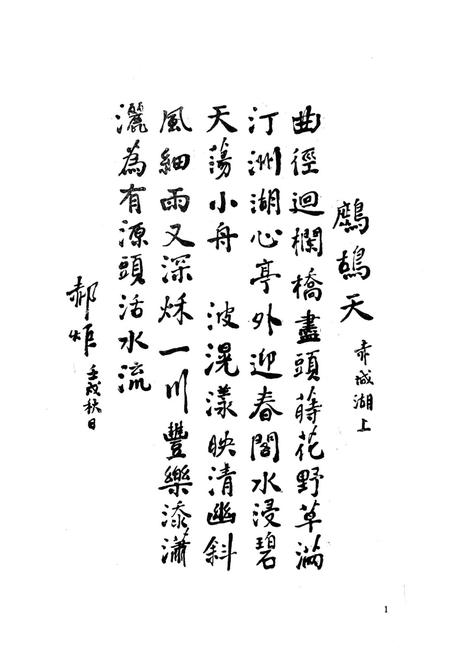 鷓鴣天 赤城湖上
曲徑迴欄橋盡頭蒔花野草滿
汀洲湖心亭外迎春閣水浸碧
天蕩小舟 波滉漾映清幽斜
風細雨又深秌一川豐樂添瀟
灑為有源頭活水流
郝炬 壬戌秋日
1